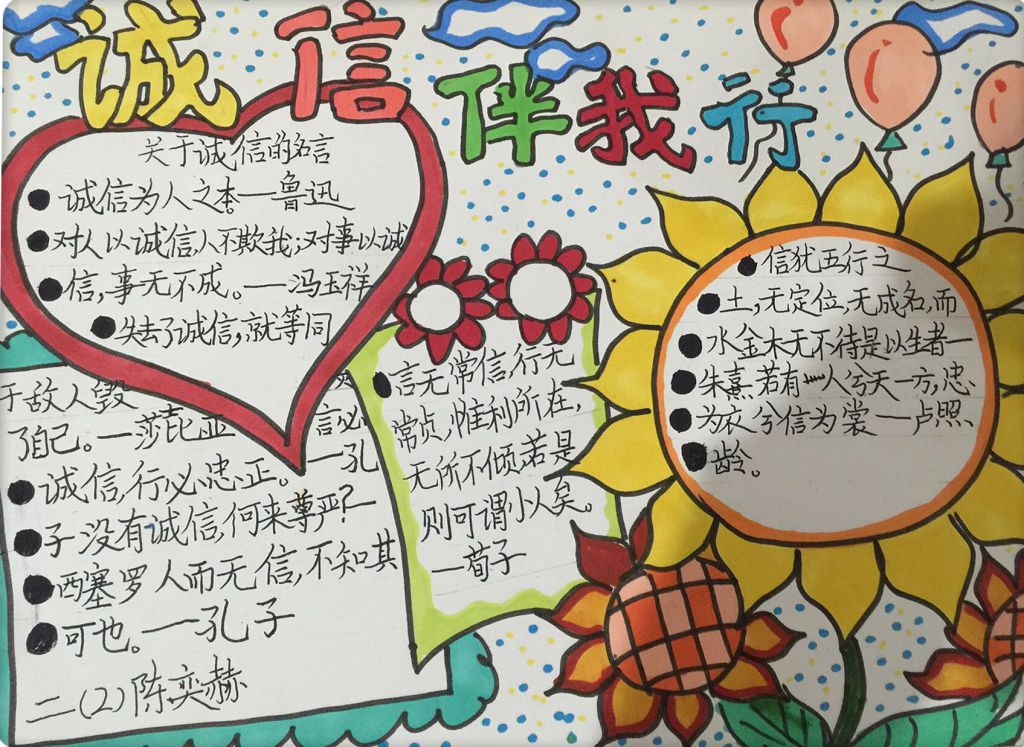 诚信伴我行
关于诚信的名言
诚信为人之本。—鲁迅
对人以诚信,人不欺我;对事以诚
信,事无不成。—冯玉祥
失去了诚信,就等同
于敌人毁
了自己。—莎士比亚 言必
诚信,行必忠正。—孔
子 没有诚信,何来尊严?—
西塞罗 人而无信,不知其
可也。—孔子
二(2)陈奕赫
言无常信,行无
常贞,惟利所在,
无所不倾,若是
则可谓小人矣。
—荀子
信犹五行之
土,无定位,无成名,而
水金木无不待是以生者—
朱熹 若有人兮天一方,忠
为衣兮信为裳—卢照
龄。